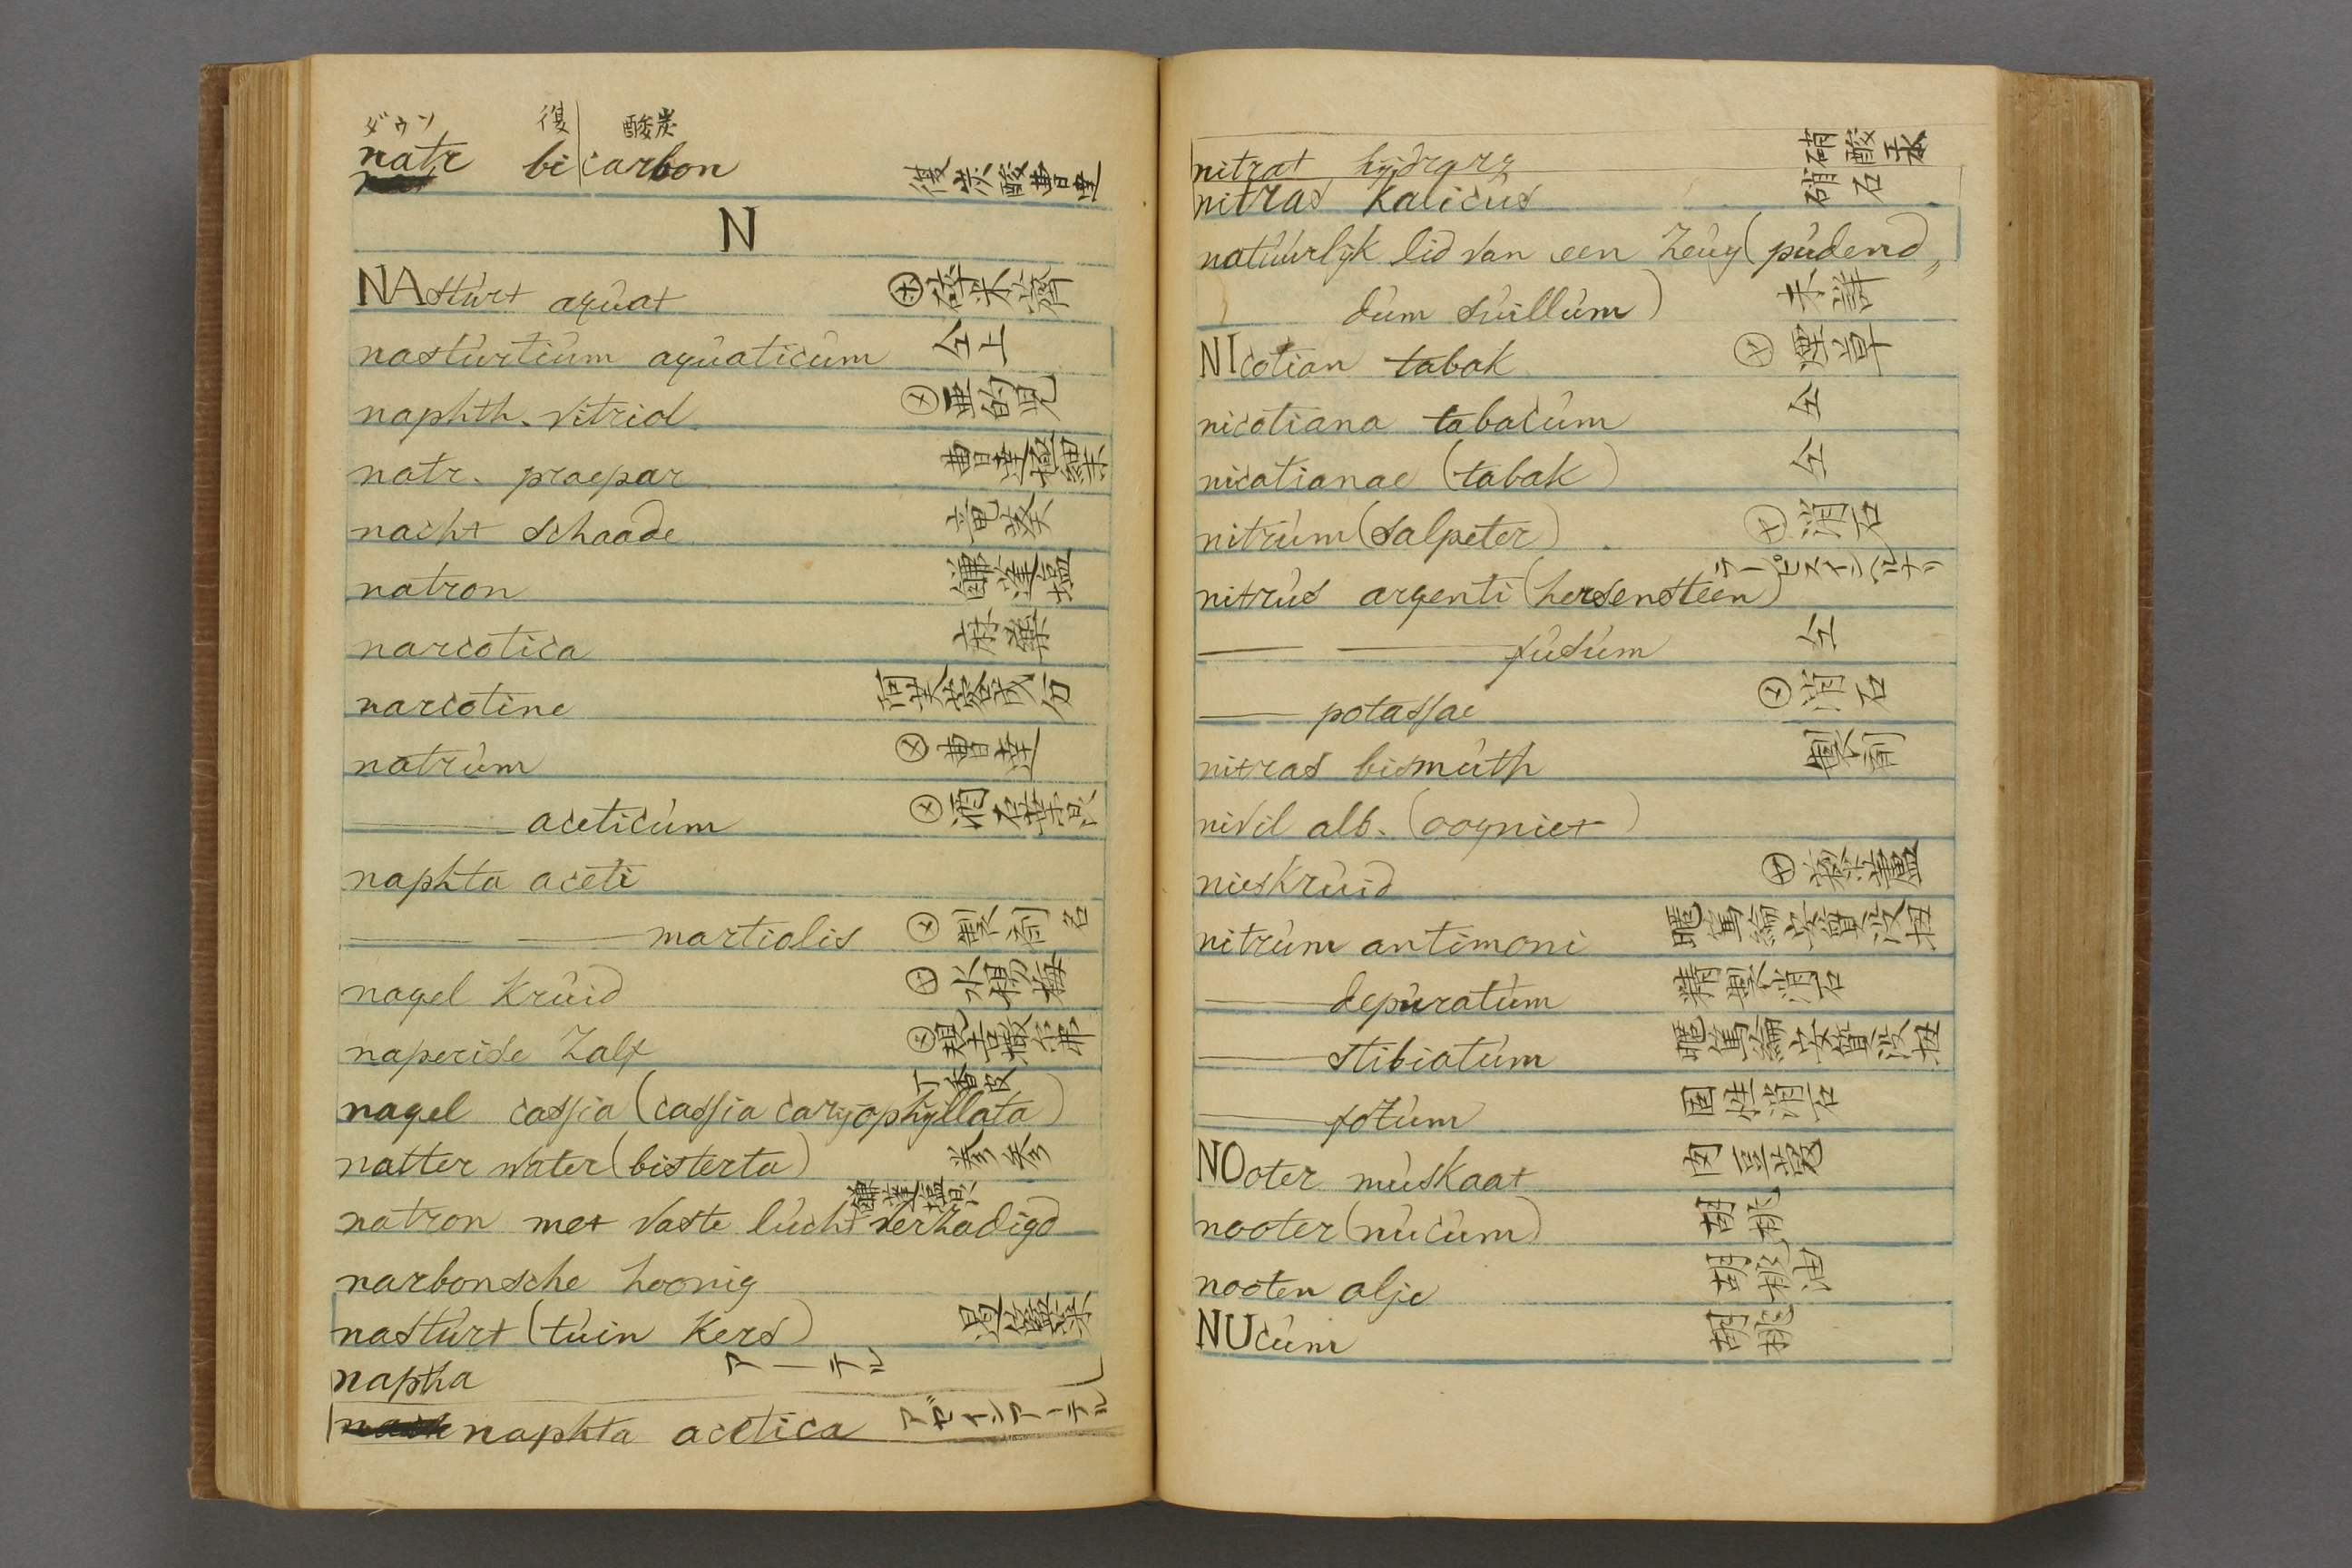 ダウン 復 酸炭
natr bicarbon 復炭酸曹達
N
NAsturt aquat
nasturtium aquaticum 仝上
naphth. vitriol. 亜的児
natr. praepar 曹達極細末
nacht schaade 竜葵
natron 鹻蓬塩
narcotica 麻薬
narcotine
natrum 曹達
aceticum
naphta aceti
martiolis 製剤名
nagel kruid 水楊梅
naperide Zalf
nagel cassia (cassia caryophyllata) 丁香皮
natter water (bisterta) 拳参
natron met vaste lucht verzadigd
narbonsche hoonig
nasturt (tuin Kers)
naptha アーテル
naphta acetica アゼインアーテル
nitrat hydrarg 硝酸汞
nitras Kalicus 硝石
natuurlyk lid van een Zeug (pudend„
dum suillum) 未詳
NIcotian tabak 煙草
nicotiana tabacum 仝
nicotianae (tabak) 仝
nitrum (salpeter) 消石
nitrus argenti (hersensteen)
fusum 仝
potassae 消石
nitras bismuth 製剤
nivil alb. (oogniet)
nieskruid
nitrum antimoni
depuratum 精製消石
stibiatum
fotum 固性消石
NOoter muskaat 肉豆蔲
nooter (nucum) 胡桃
nooten olje 胡桃油
NUcum 胡桃